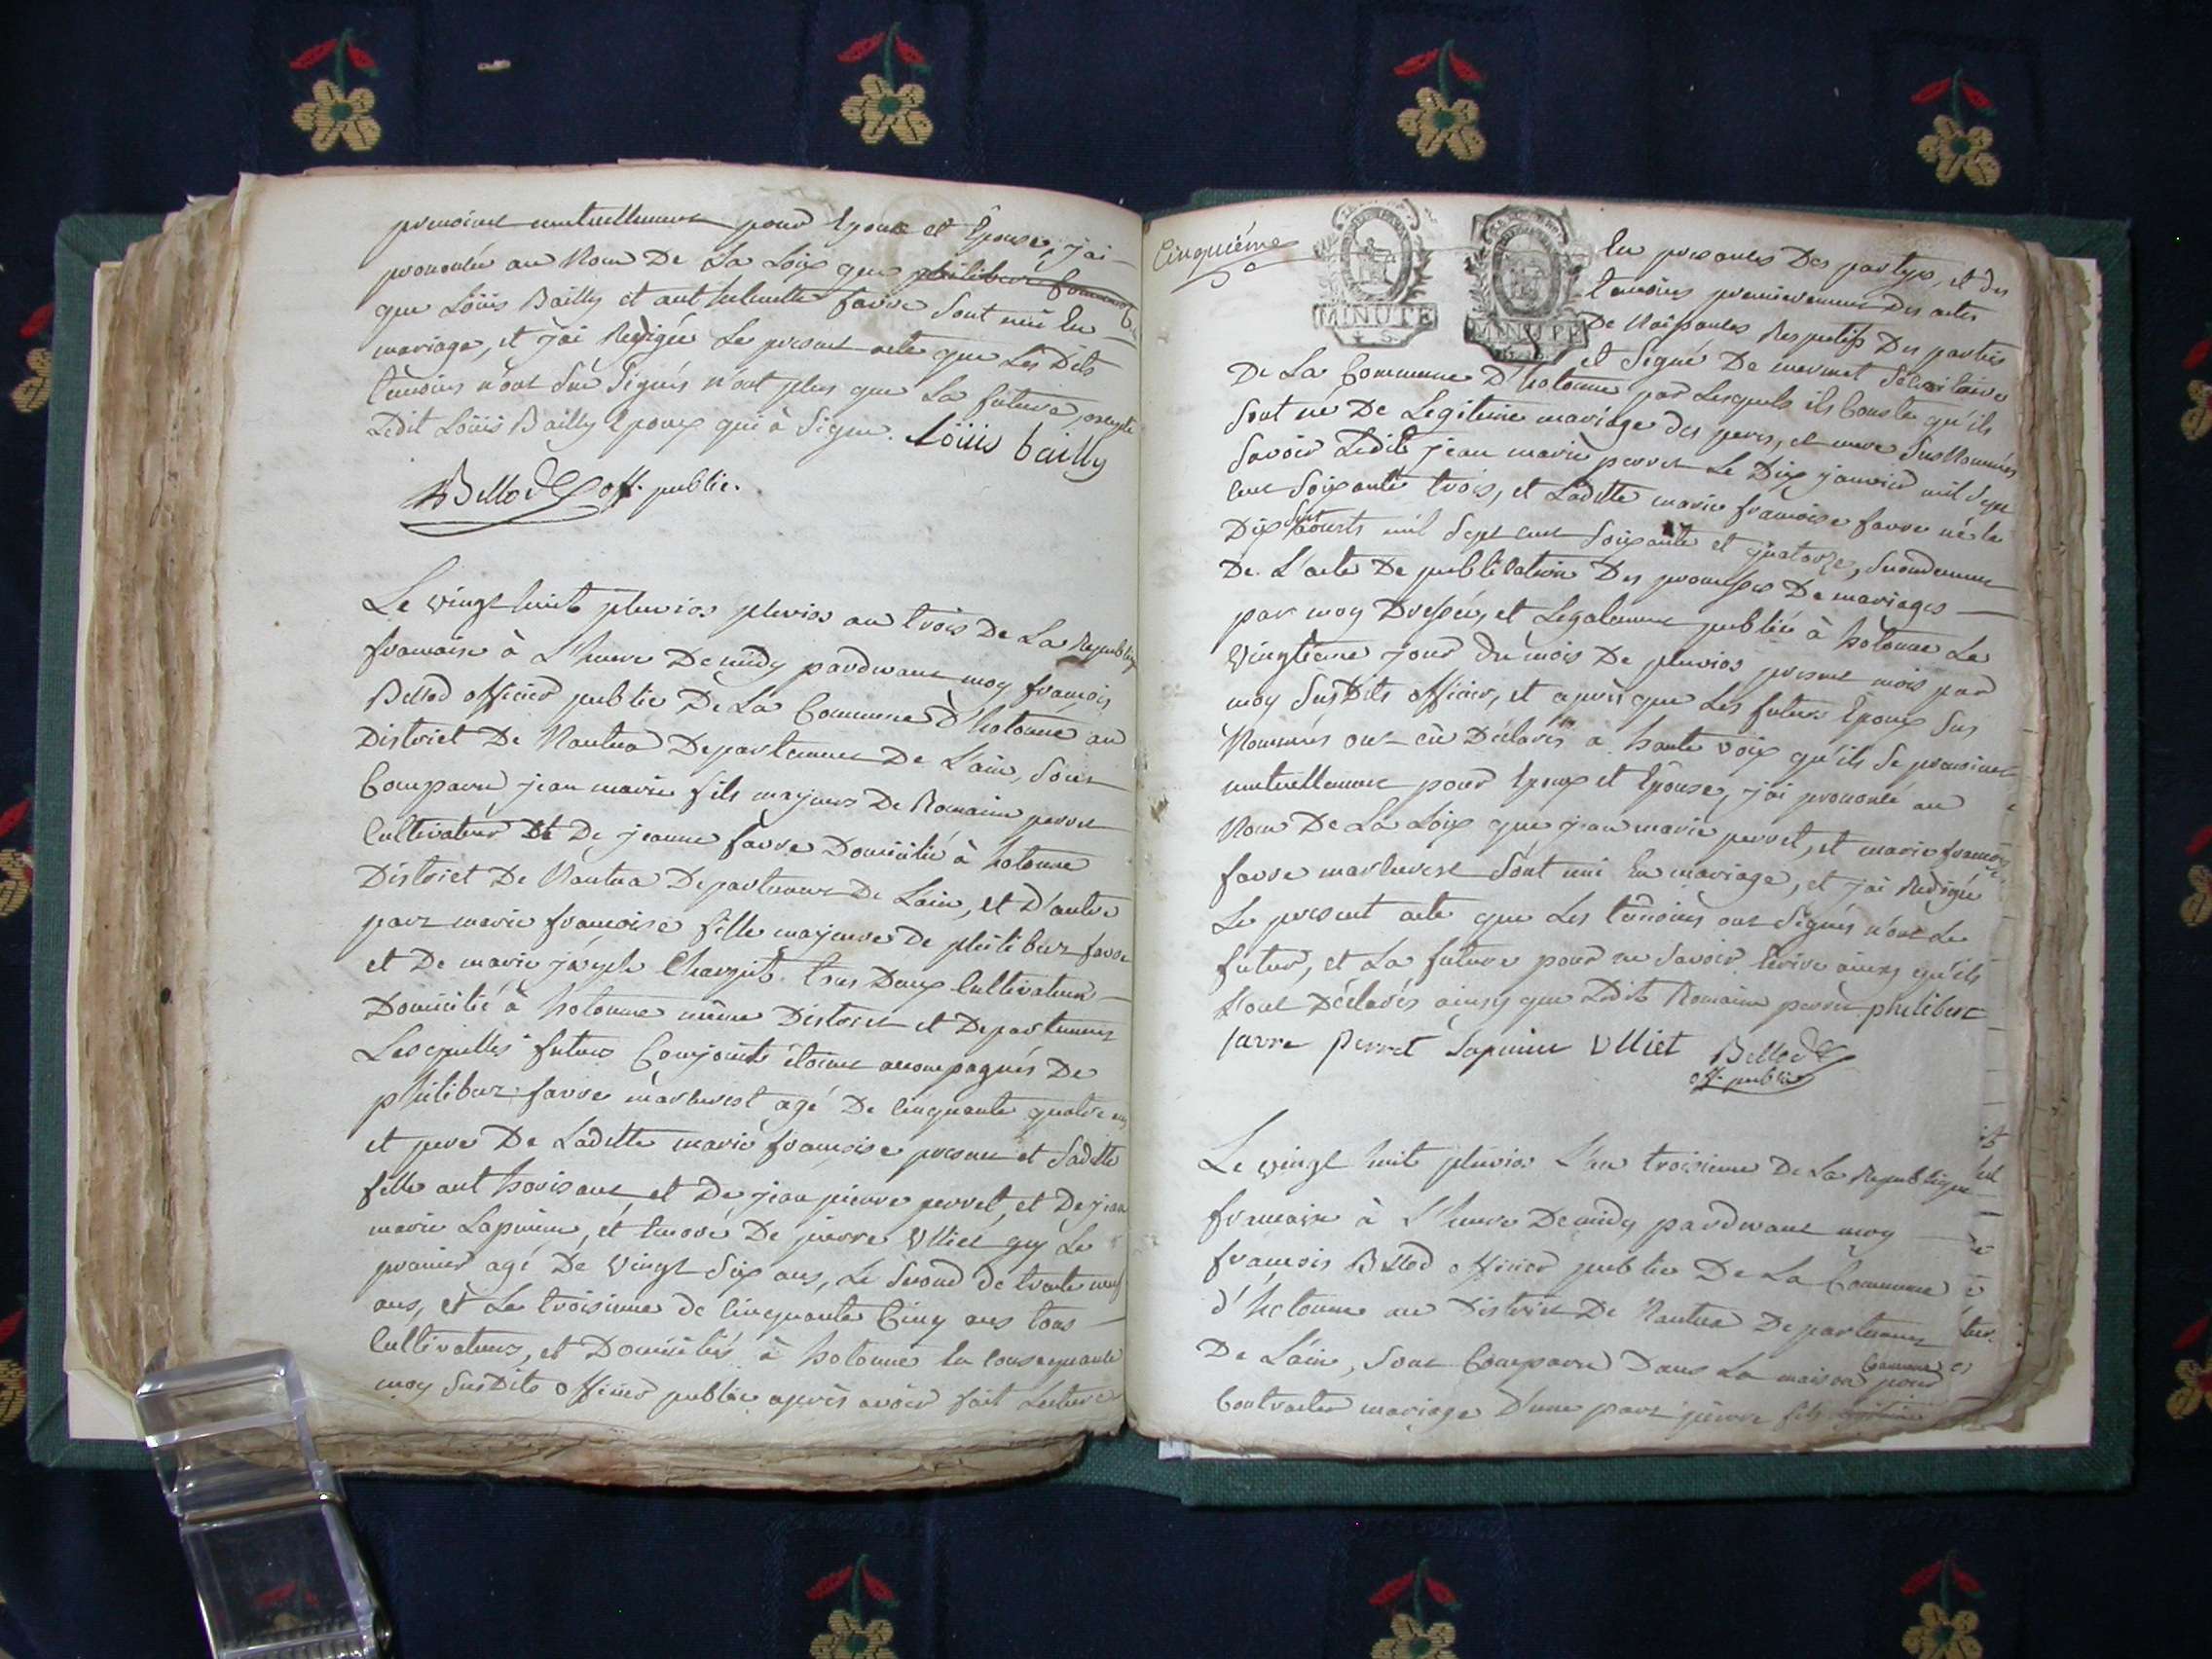 prenoint mutuellement pour Epoux et Epouse, j'ai
prononcée au Nom De La Loix que philibert
que Löüis Bailly et anthelmette favre Sont unis En
mariage, et j'ai Redigée Le present acte que Les Dits
temoins n'ont Sû Signés n'ont plus que La future, excepté
Ledit Löüis Bailly Epoux qui à Signé. Löüis bailly
Bellod off. public.
Le vingt huit pluvios pluvios an trois De La Republiq
francaise à L'heure De midy pardevant moy françois
Bellod officier public De La Commune D'hotonne au
District De Nantua Departement De L'ain, Sont
Comparu jean marie fils majeurs De Romain perret
Cultivateur et De jeanne favre Domicilié à hotonne
District De Nantua Departement De Lain, et D'autre
part marie francoise fille majeure De philibert favre
et De marie joseph Charpit tous Deux Cultivateur
Domicilié à hotonne même District et Departement
Lesequelles futurs Conjoints étoint accompagnés De
philibert favre marherest agé De Cinquante quatre ans
et pere De Laditte marie francoise present et Saditte
fille authorisant, et De jean pierre perret, et De jean
marie Lapierre, et Encore De pierre Ulliet guy Le
premier agé De vingt Six ans, Le Second de trente neuf
ans, et Le troisieme de Cinquante Cinq ans tous
Cultivateurs, et Domiciliés à hotonne En Consequence
moy Susdits officier public après avoir fait Lecture
Cinquiéme
MINUTE
MINUTE
En presences Des partys, et des
temoins premierement Des actes
De Naissances Respectifs Des parties
et Signé De mermet Secretaire
De La Commune D'hotonne par Lesquels ils Conste qu'ils
Sont né De Legitime mariage des peres, et mere Susnommés
Savoir Ledit jean marie perret Le Dix janvier mil Sept
Cent Soixante trois, et Laditte marie francoise favre née le
Dix Sept aousts mil Sept cent Soixante et quatorze, Secondement
De L'acte De publication Des promesses De mariages
par moy Dressée, et Legalement publiée à hotonne Le
vingtieme jour du mois De pluvios present mois par
moy Susdits officier, et après que Les futurs Epoux Sus
Nommés ont eù Déclarés à haute voix qu'ils Se prenoient
mutuellement pour Epoux et Epouse, j'ai prononcé au
Nom De La Loix que jean marie perret, et marie francoise
favre marherest Sont uni En mariage, et j'ai Redigée
Le present acte que Les temoins ont Signés n'ont Le
futur, et La future pour ne Savoir Ecrire ainsy qu'ils
L'ont Déclarés ainsy que Ledit Romain perret philibert
favre Perret Lapierre Ulliet Bellod
off. public
Le vingt huit pluvios L'an troisieme De La Republique
francaise à L'heure De midy pardevant moy
françois Bellod officier public De La Commune
d'hotonne au District De Nantua Departement
De Lain, Sont Comparu Dans La maison Commune pour
Contracter mariage D'une part pierre fils